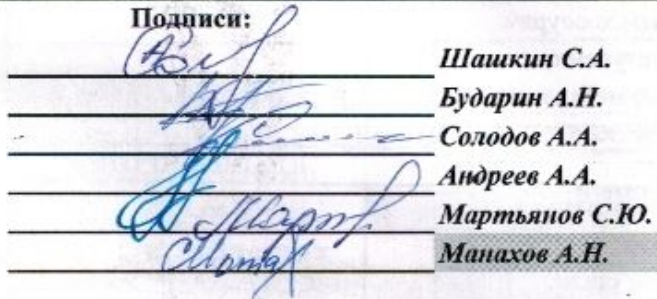 Подписи:
Шашкин С.А.
Бударин А.Н.
Солодов А.А.
Андреев А.А.
Мартьянов С.Ю.
Манахов А.Н.